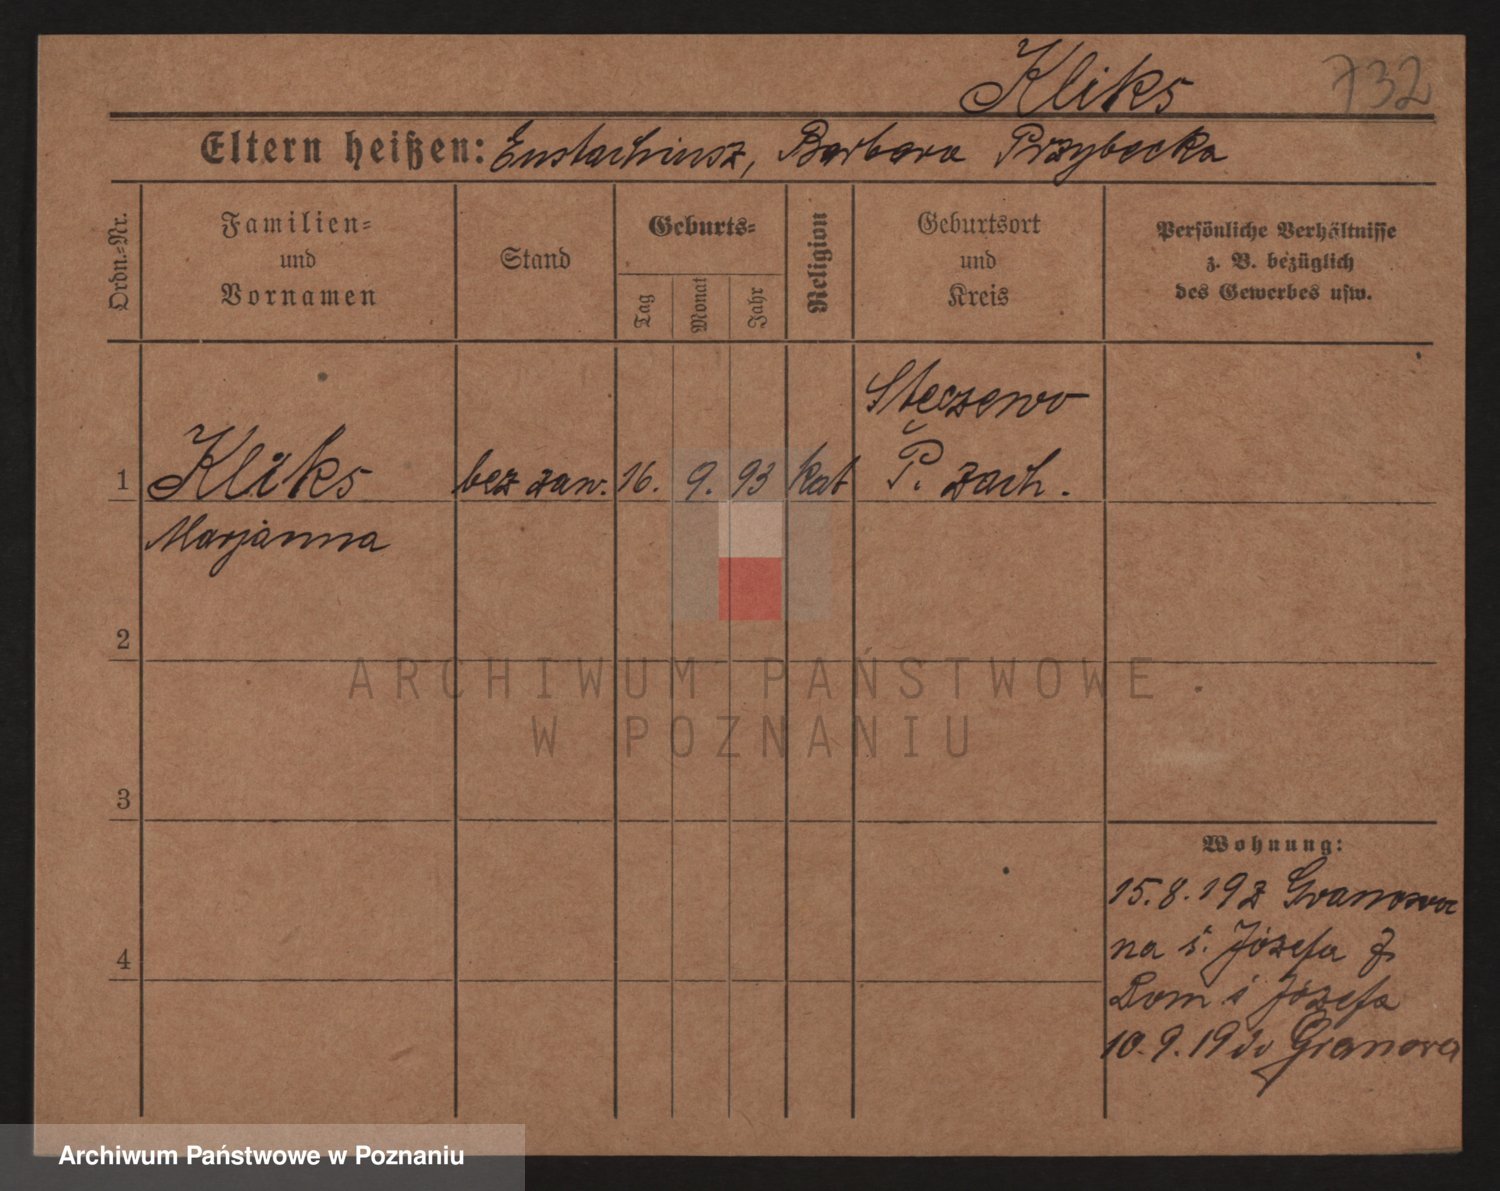 Kliks 732
Eltern heißen: Eustachiusz, Barbara Przybecka
Ordn.-Nr.
Familien- und Vornamen
Stand
Geburts-
Tag
Monat
Jahr
Religion
Geburtsort und Kreis
Persönliche Verhältnisse
z. B. bezüglich
des Gewerbes usw.
Stęszewo
1 Kliks bez zaw. 16. 9. 93 kat P. zach.
Marjanna
2
ARCHIWUM PAŃSTWOWE
W POZNANIU
3
Wohnung:
15.8.19 z Granowa
na ś. Józefa
4
Dom ś Józefa
10.9.19 do Granowa
Archiwum Państwowe w Poznaniu